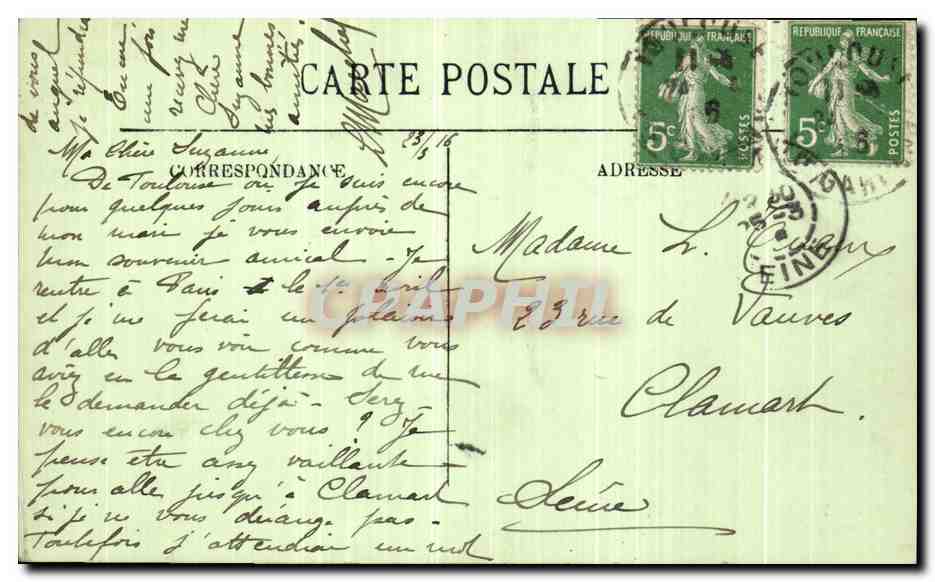 CARTE POSTALE
CORRESPONDANCE
ADRESSE
REPUBLIQUE FRANÇAISE
5c
POSTES
REPUBLIQUE FRANÇAISE
5c
POSTES
TOULOUSE
GARE
EINE
CPAPHIL
23/3 16
Ma chère Suzanne
De Toulouse où je suis encore
pour quelques jours auprès de
mon mari je vous envoie
mon souvenir amical - Je
rentre à Paris le 1er avril
et je me ferai un plaisir
d'aller vous voir comme vous
aviez eu la gentillesse de me
le demander déjà - Serez
vous encore chez vous ? Je
pense être assez vaillante
pour aller jusqu'à Clamart
si je ne vous dérange pas -
Toutefois j'attendrai un mot
de vous
auquel
je répondrai
Encore
une fois
recevez ma
Chère
Suzanne
mes bonnes
amitiés
Madame L.
23 rue de Vanves
Clamart.
Seine